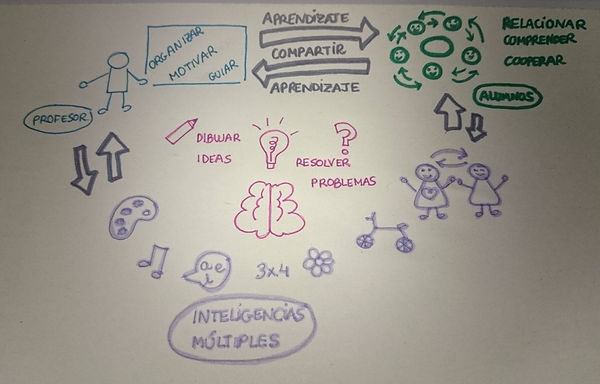 APRENDIZAJE
COMPARTIR
APRENDIZAJE
ORGANIZAR
MOTIVAR
GUIAR
PROFESOR
RELACIONAR
COMPRENDER
COOPERAR
ALUMNOS
DIBUJAR
IDEAS
?
RESOLVER
PROBLEMAS
a e
i
3x4
INTELIGENCIAS
MÚLTIPLES